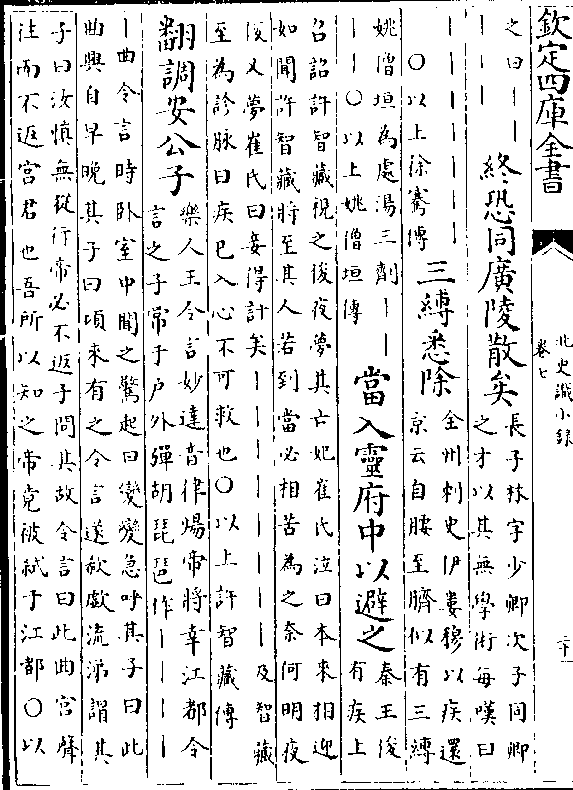 欽定四庫全書
北史識小録
卷七
二十一
之曰｜｜
｜｜｜
終恐同廣陵散矣
長子林字少卿次子同卿
之才以其無學術每嘆曰
｜｜｜｜｜｜
〇以上徐謇傳
三縛悉除
金州刺史伊婁穆以疾還
京云自腰至臍似有三縛
姚僧垣為處湯三劑｜｜
｜｜〇以上姚僧垣傳
當入靈府中以避之
秦王俊
有疾上
召詔許智藏視之後夜夢其亡妃崔氏泣曰本來相迎
如聞許智藏將至其人若到當必相苦為之奈何明夜
後又夢崔氏曰妾得計矣｜｜｜｜｜｜｜｜及智藏
至為診脉曰疾已入心不可救也〇以上許智藏傳
翻調安公子
樂人王令言妙達音律煬帝將幸江都令
言之子常于户外彈胡琵琶作｜｜｜｜
｜曲令言時卧室中聞之驚起曰變變急呼其子曰此
曲興自早晚其子曰頃來有之令言遂欷歔流涕謂其
子曰汝慎無從行帝必不返子問其故令言曰此曲宮聲
往而不返宮君也吾所以知之帝竟被弑于江都〇以